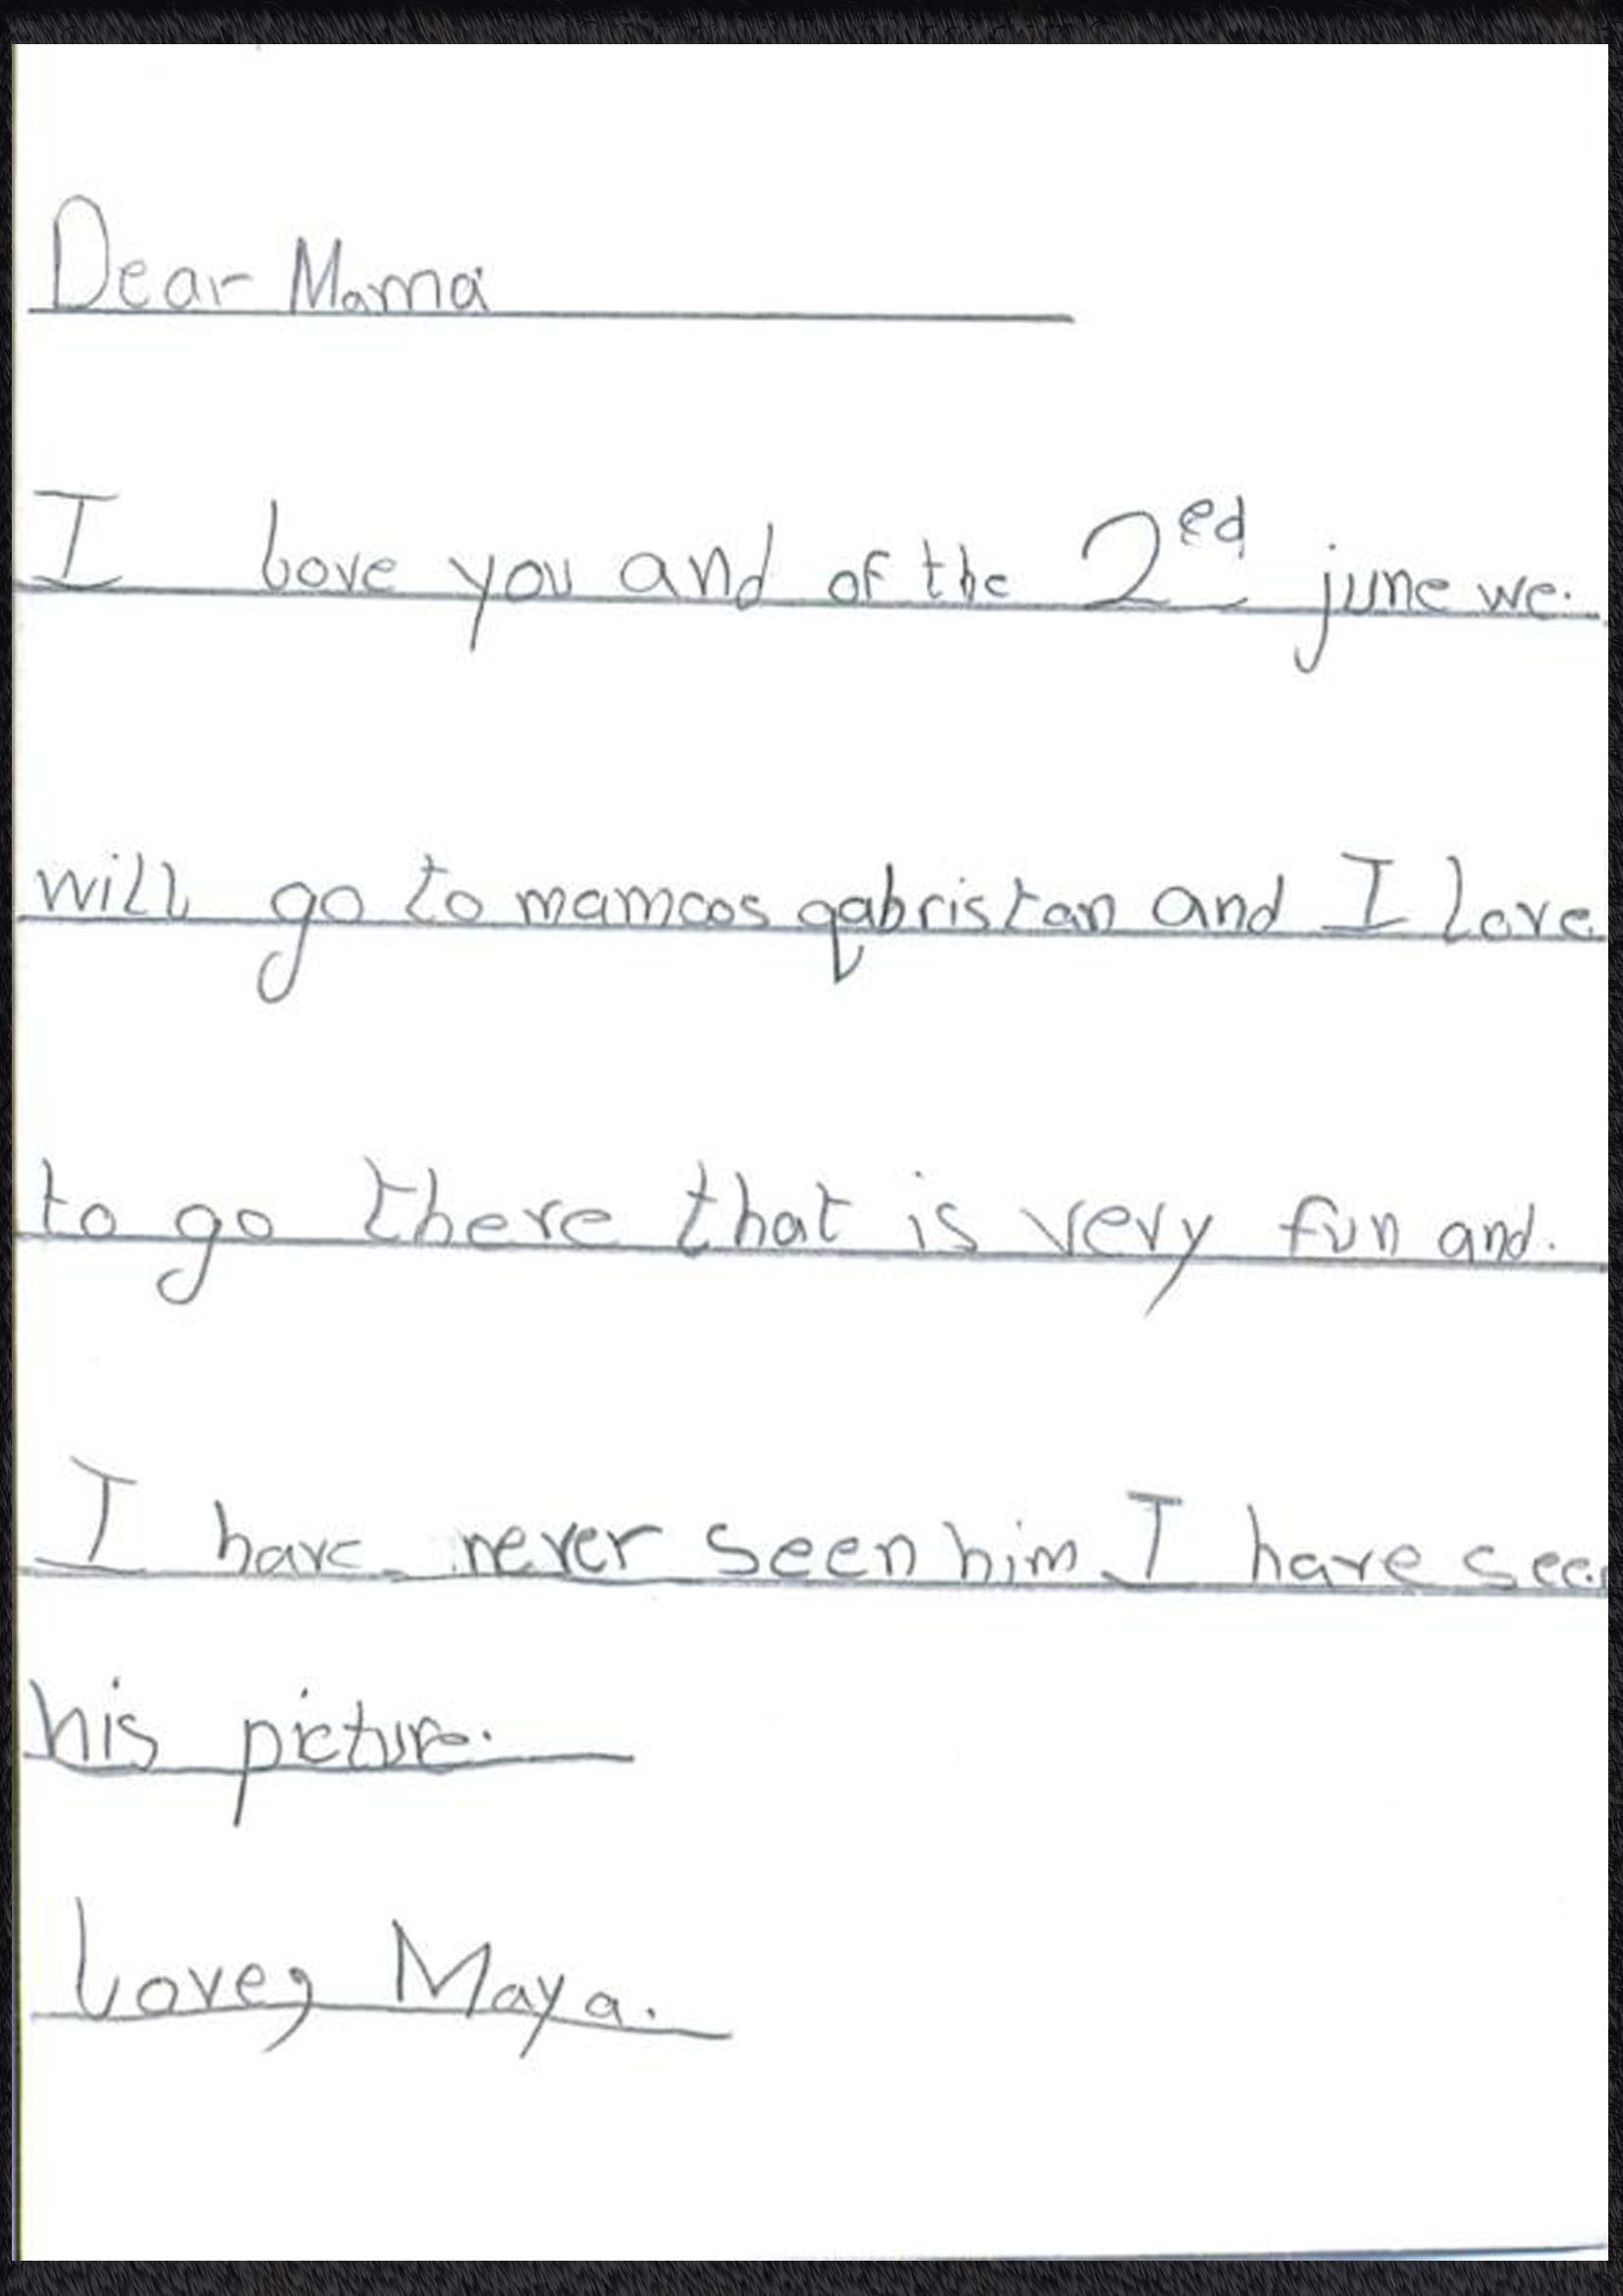 Dear Mama
I love you and of the 2ed june we.
will go to mamoos qabristan and I love
to go there that is very fun and.
I have never seen him I have seen
his picture.
Love, Maya.